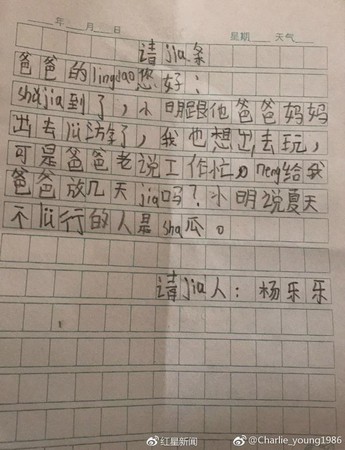 年 月 日 星期 天气
请jia条
爸爸的lingdao您好：
shǔjia到了，小明跟他爸爸妈妈
出去lü游了，我也想出去玩，
可是爸爸老说工作忙。neng给我
爸爸放几天jia吗？小明说夏天
不lü行的人是sha瓜。
请jia人：杨乐乐
红星新闻
@Charlie_young1986